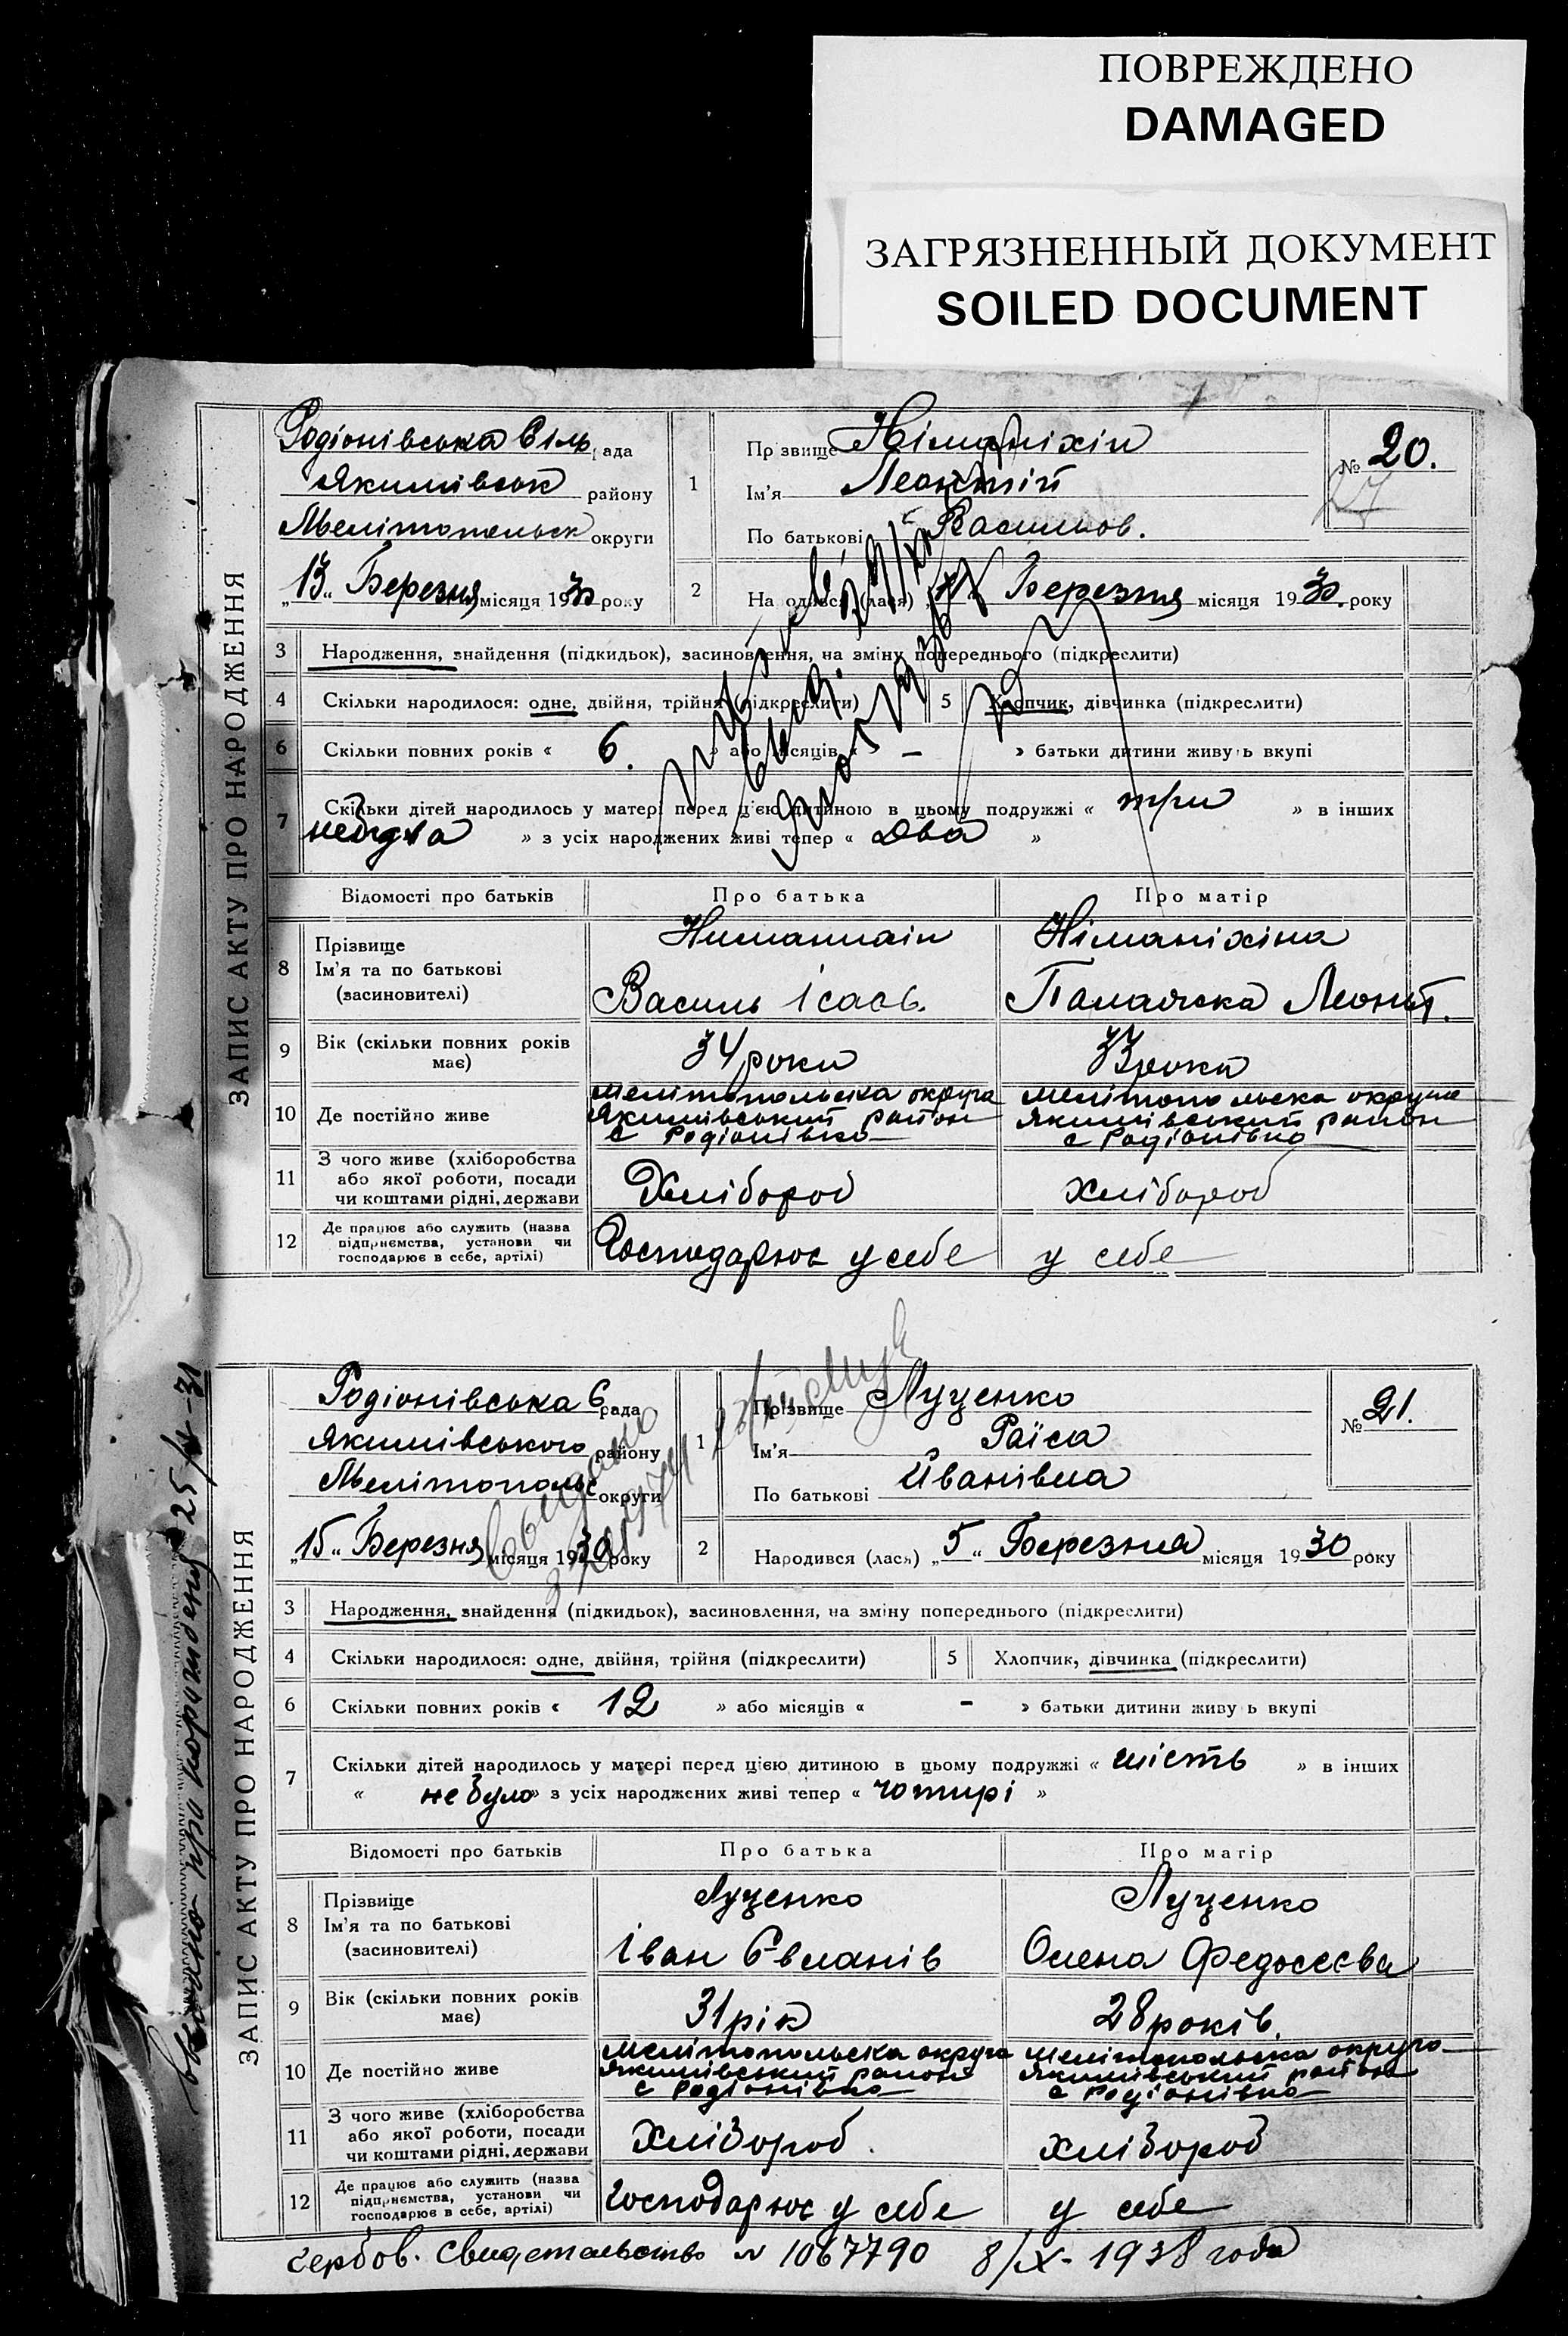 ПОВРЕЖДЕНО
DAMAGED
ЗАГРЯЗНЕННЫЙ ДОКУМЕНТ
SOILED DOCUMENT
ЗАПИС АКТУ ПРО НАРОДЖЕННЯ
Родіонівська Сіль рада
Якимівськ району
Мелітопольськ округи
„13“ Березня місяця 1930 року
1
Прізвище
Ім'я Леонтій
По батькові Васильов.
№ 20.
27
2
Народився (лася) Березня місяця 1930. року
3 Народження, знайдення (підкидьок), засиновлення, на зміну попереднього (підкреслити)
4 Скільки народилося: одне, двійня, трійня (підкреслити) 5 Хлопчик, дівчинка (підкреслити)
6 Скільки повних років « 6. » або місяців « – » батьки дитини живуть вкупі
7 Скільки дітей народилось у матері перед цією дитиною в цьому подружжі « три » в інших
небуло » з усіх народжених живі тепер « два »
Відомості про батьків Про батька Про матір
8 Прізвище
Ім'я та по батькові
(засиновителі)
Німаніхіна
Василь Ісаєв. Палажка Леонт.
9 Вік (скільки повних років має) 34 роки 33 роки
10 Де постійно живе
Мелітопольська округа Мелітопольська округа
Якимівський район Якимівський район
с Родіонівка с Родіонівка
11 З чого живе (хліборобства
або якої роботи, посади
чи коштами рідні, держави
Хлібороб хлібороб
12 Де працює або служить (назва
підприємства, установи чи
господарює в себе, артілі)
Господарює у себе у себе
ЗАПИС АКТУ ПРО НАРОДЖЕННЯ
Родіонівська С рада
Якимівського району
Мелітопольс округи
„15“ Березня місяця 1930 року
1
Прізвище Луценко
Ім'я Раїса
По батькові Іванівна
№ 21.
2
Народився (лася) „5“ Березня місяця 1930 року
3 Народження, знайдення (підкидьок), засиновлення, на зміну попереднього (підкреслити)
4 Скільки народилося: одне, двійня, трійня (підкреслити) 5 Хлопчик, дівчинка (підкреслити)
6 Скільки повних років « 12 » або місяців « – » батьки дитини живуть вкупі
7 Скільки дітей народилось у матері перед цією дитиною в цьому подружжі « шість » в інших
« не було » з усіх народжених живі тепер « чотирі »
Відомості про батьків Про батька Про матір
8 Прізвище
Ім'я та по батькові
(засиновителі)
Луценко Луценко
Іван Євланів Олена Федосеєва
9 Вік (скільки повних років має) 31 рік 28 років.
10 Де постійно живе
Мелітопольська округа Мелітопольська округа
Якимівський район Якимівський район
с Родіонівка с Родіонівка
11 З чого живе (хліборобства
або якої роботи, посади
чи коштами рідні, держави
Хлібороб хлібороб
12 Де працює або служить (назва
підприємства, установи чи
господарює в себе, артілі)
господарює у себе у себе
гербов. Свидетельство № 1067790 8/X - 1938 года